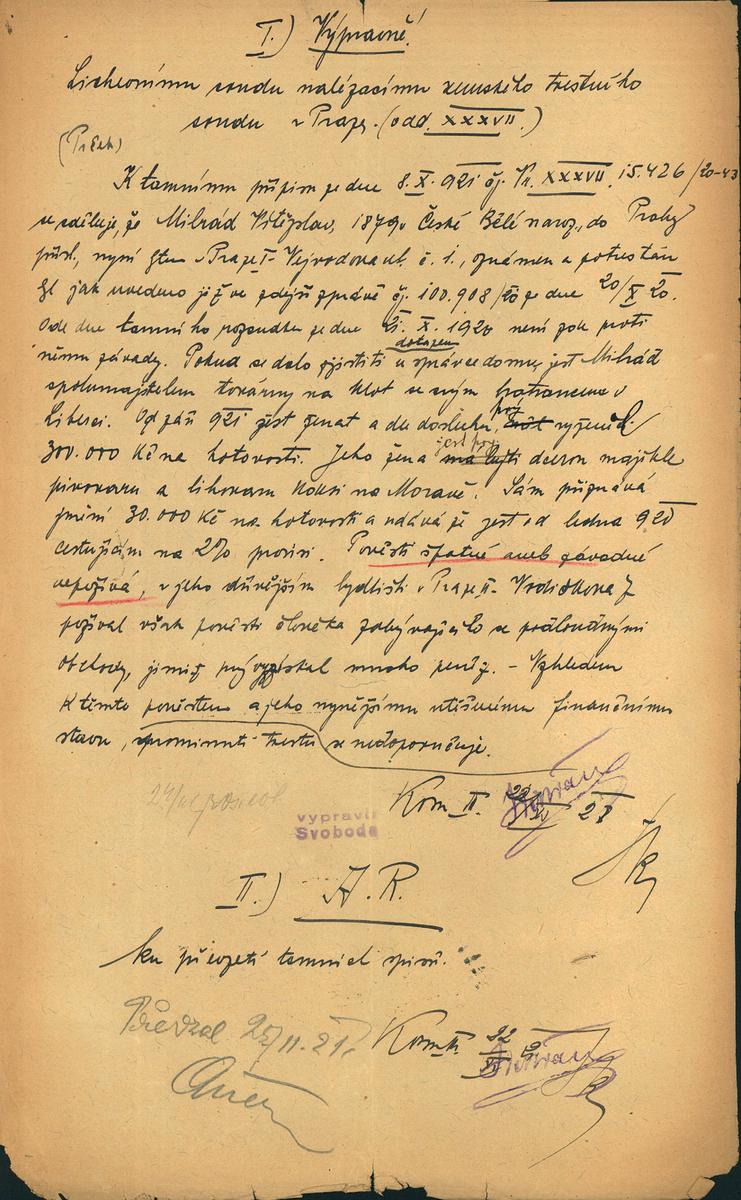 I.) Výpravně!
Lichevnímu soudu nalézacímu zemského trestního
soudu v Praze. (odd. XXXVII.)
K tamnímu přípisu ze dne 8. X. 921 čj. Vr. XXXVII. 15.426/20-43
se sděluje, že Milrád Vítězslav, 1879 v České Bělé naroz., do Prahy
přísl., nyní bytem v Praze I- Vejvodova ul. č. 1., oznámen a potrestán
byl jak uvedeno již ve zdejší zprávě čj. 100.908/20 ze dne 20/X 20.
Ode dne tamního rozsudku ze dne X. 1920 není zde proti
dotazem
němu závady. Pokud se dalo zjistiti u správce domu, jest Milrád
spolumajitelem továrny na klot se svým bratrancem v
Liberci. Od září 921 jest ženat a dle doslechu prý vyženil
300.000 Kč na hotovosti. Jeho žena jest prý dcerou majitele
pivovaru a lihovaru na Moravě. Sám přiznává
jmění 30.000 Kč na hotovosti a udává že jest od ledna 920
cestujícím na 2% provisi. Pověsti špatné aneb závadné
nepožívá, v jeho dřívějším bydlišti v Praze II- Vodičkova 7
požíval však pověsti člověka zabývajícího se podloudnými
obchody, jimiž prý získal mnoho peněz. - Vzhledem
k těmto pověstem a jeho nynějšímu utěšenému finančnímu
stavu, prominutí trestu se nedoporučuje.
Kom II.
vypravil
Svoboda
II.) A. R.
ku převzetí tamních spisů.
Převzal 25/11. 21.
Kom II. 22